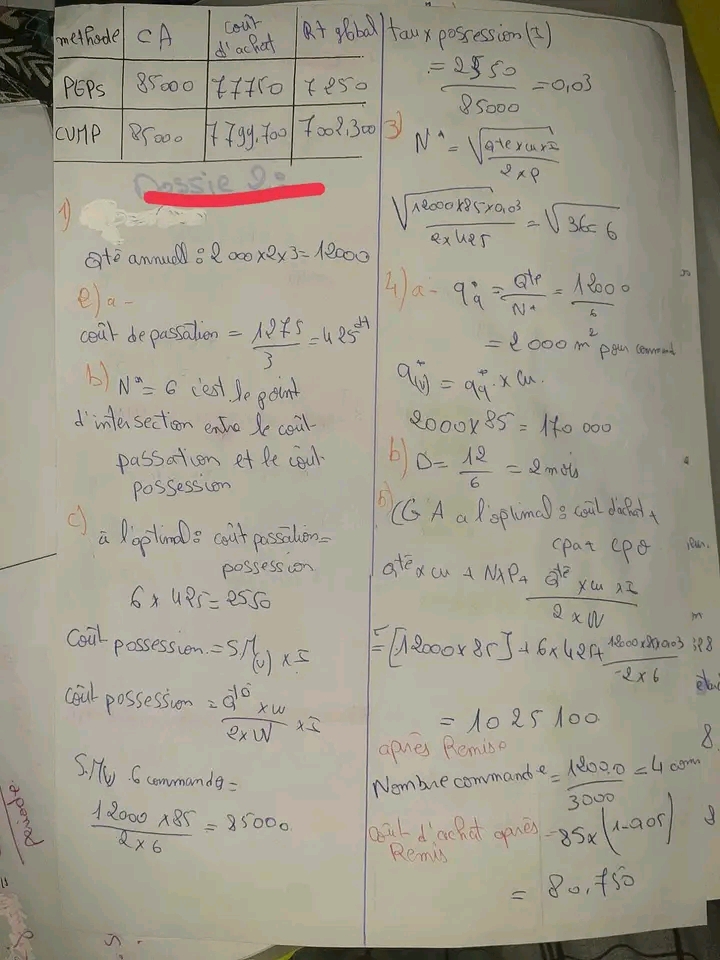 methode | CA | coût d'achat | Rt global
PEPs | 85000 | 77750 | 7250
CUMP | 85000 | 7799,700 | 7002,300
Dossie 2:
1)
Qté annuell : 2000x2x3=12000
2) a -
coût de passation = 1275/3 = 425 dh
b) N* = 6 c'est le point
d'intersection entre le coût
passation et le coût
possession
c)
à l'optimal : coût passation =
possession
6 x 425 = 2550
Coût possession = S.M(v) x I
Coût possession = Qté x cu/2xN x I
S.Mv 6 commande =
12000 x 85/2 x 6 = 85000
taux possession (I)
= 2550/85000 = 0,03
3) N* = √Qté x cu x I/2 x P
√12000x85x0,03/2x425 = √36 = 6
4) a- q*q = Qté/N* = 12000/6
= 2000 m² pour command
q*(v) = q*q x cu.
2000 x 85 = 170 000
b) D = 12/6 = 2 mois
5) CGA a l'optimal : coût d'achat +
cpa + cpo
Qté x cu + NxP + Qté x cu x I/2 x N
= [12000 x 85] + 6 x 425 + 12000x85x0,03/2 x 6
= 1025100
après Remise
Nombre commande = 12000/3000 = 4 com
Coût d'achat après = 85x(1-0,05)
Remis
= 80,750
Période